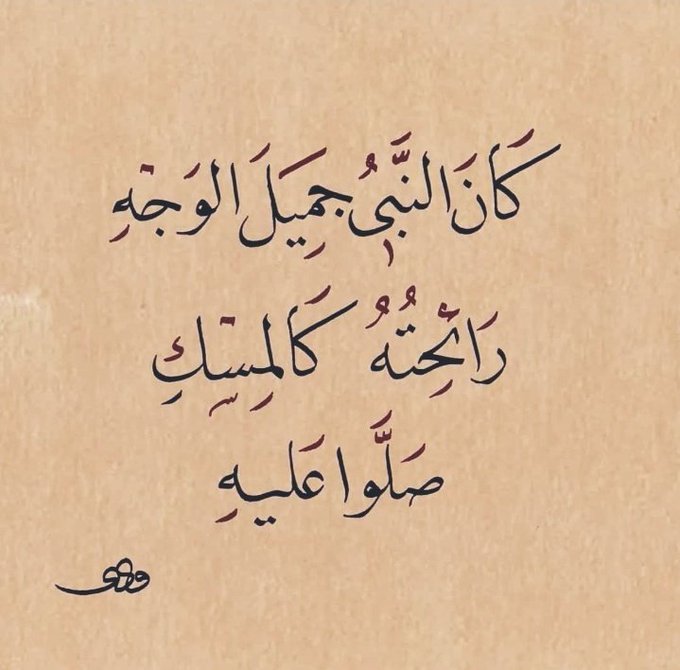 كَانَ النَّبِيُّ جَمِيَلَ الوَجْهِ
رَائِحَتُهُ كَالمِسْكِ
صَلَّوا عَليهِ